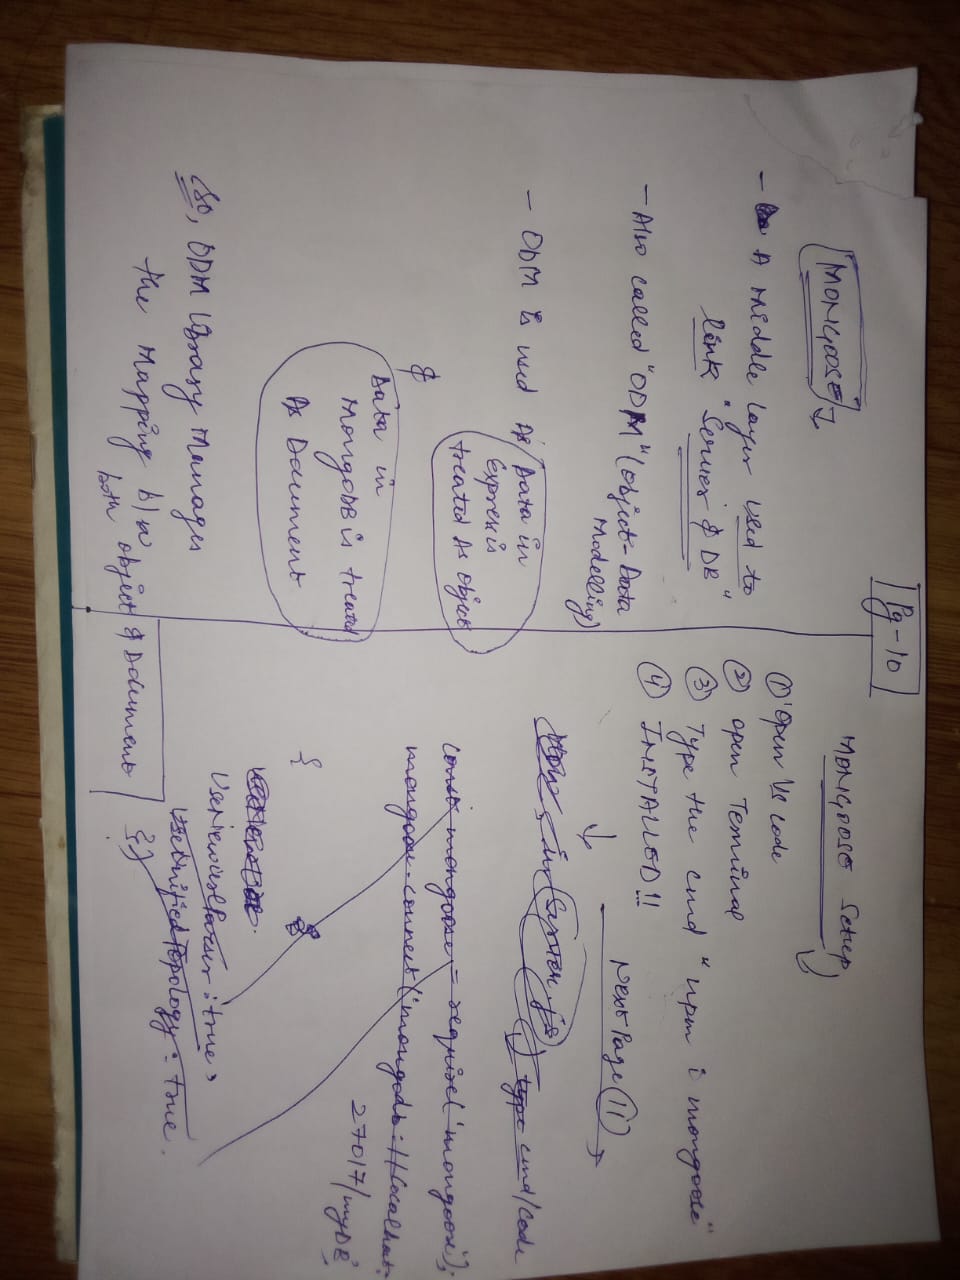 Pg-10
MONGOOSE
- A Middle layer used to
link "Server & DB"
- Also called "ODM" (Object-Data
Modelling)
- ODM is used As Data in
Express is
treated As Object
&
Data in
MongoDB is treated
As Document
So, ODM library Manages
the Mapping b/w
both object & Document
MONGOOSE Setup
① Open Vs code
② open Terminal
③ Type the cmd "npm i mongoose"
④ INSTALLED!!
Next Page 11
Now, in Server.js
type cmd/code
const mongoose = require('mongoose');
mongoose.connect('mongodb://localhost:
27017/myDB',
{
UseNewUrlParser: true,
UseUnifiedTopology: true.
})